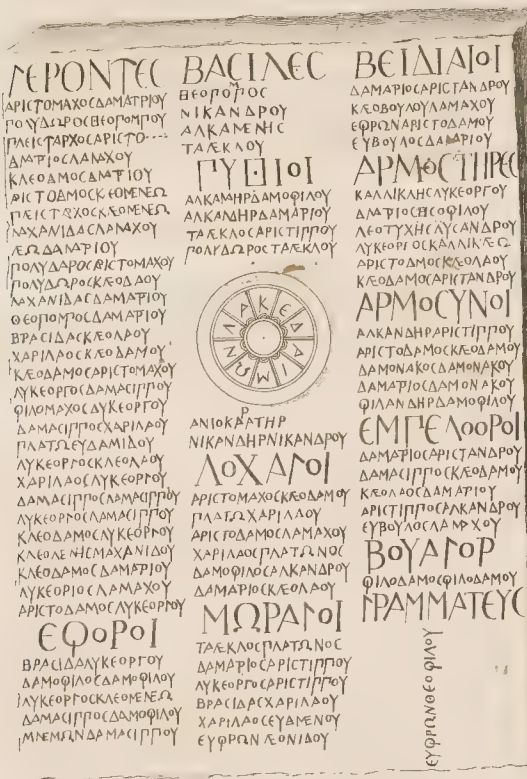 ΓΕΡΟΝΤΕϹ
ΑΡΙϹΤΟΜΑΧΟϹΔΑΜΑΤΡΙΟΥ
ΠΟΛΥΔΩΡΟϹΘΕΟΠΟΜΠΟΥ
ΠΛΕΙϹΤΑΡΧΟϹΑΡΙϹΤΟ----
ΔΜΑΤΡΙΟϹΛΑΜΑΧΟΥ
ΚΛΕΟΔΑΜΟϹΔΜΑΤΡΙΟΥ
ΑΡΙϹΤΟΔΜΟϹΚΕΟΜΕΝΕΩ
ΠΛΕΙϹΤΑΡΧΟϹΚΛΕΟΜΕΝΕΩ
ΜΑΧΑΝΙΔΑϹΛΑΜΑΧΟΥ
ΛΕΩΔΑΝΑΤΡΙΟΥ
ΠΟΛΥΔΑΡΟϹΑΡΙϹΤΟΜΑΧΟΥ
ΠΟΛΥΔΩΡΟϹΚΛΕΟΔΑΟΥ
ΜΑΧΑΝΙΔΑϹΔΑΜΑΤΡΙΟΥ
ΘΕΟΠΟΜΠΟϹΔΑΜΑΤΡΙΟΥ
ΒΡΑϹΙΔΑϹΚΛΕΟΛΑΟΥ
ΧΑΡΙΛΑΟϹΚΛΕΟΔΑΜΟΥ
ΚΛΕΟΔΑΜΟϹΑΡΙϹΤΟΜΑΧΟΥ
ΛΥΚΕΟΡΓΟϹΔΑΜΑϹΙΠΠΟΥ
ΦΙΛΟΜΑΧΟϹΛΥΚΕΟΡΓΟΥ
ΔΑΜΑϹΙΠΠΟϹΧΑΡΙΛΑΟΥ
ΠΛΑΤΩΕΥΔΑΜΙΔΟΥ
ΛΥΚΕΟΡΓΟϹΚΛΕΟΛΑΟΥ
ΧΑΡΙΛΑΟϹΛΥΚΕΟΡΓΟΥ
ΔΑΜΑϹΙΠΠΟϹΛΑΜΑϹΙΠΠΟΥ
ΛΥΚΕΟΡΓΟϹΛΑΜΑϹΙΠΠΟΥ
ΚΛΕΟΔΑΜΟϹΛΥΚΕΟΡΓΟΥ
ΚΛΕΟΛΕΝΗϹΜΑΧΑΝΙΔΟΥ
ΚΛΕΟΔΑΜΟϹΔΑΜΑΤΡΙΟΥ
ΛΥΚΕΟΡΓΙΟϹΛΑΜΑΧΟΥ
ΑΡΙϹΤΟΔΑΜΟϹΛΥΚΕΟΡΓΟΥ
ΕΦΟΡΟΙ
ΒΡΑϹΙΔΑΛΥΚΕΟΡΓΟΥ
ΔΑΜΟΦΙΛΟϹΔΑΜΟΦΙΛΟΥ
ΛΥΚΕΟΡΓΟϹΚΛΕΟΜΕΝΕΩ
ΔΑΜΑϹΙΠΠΟϹΔΑΜΟΦΙΛΟΥ
ΜΝΕΜΩΝΔΑΜΑϹΙΠΠΟΥ
ΒΑϹΙΛΕϹ
ΘΕΟΠΟΜΠΟϹ
ΝΙΚΑΝΔΡΟΥ
ΑΛΚΑΜΕΝΗϹ
ΤΑΛΕΚΛΟΥ
ΠΥΘΙΟΙ
ΑΛΚΑΜΗΡΔΑΜΟΦΙΛΟΥ
ΑΛΚΑΝΔΗΡΔΑΜΑΡΙΟΥ
ΤΑΛΕΚΛΟϹΑΡΙϹΤΙΠΠΟΥ
ΠΟΛΥΔΩΡΟϹΤΑΛΕΚΛΟΥ
ΛΑΚΕΔΑΙΜΩΝ
ΑΝΙΟΚΡΑΤΗΡ
ΝΙΚΑΝΔΗΡΝΙΚΑΝΔΡΟΥ
ΛΟΧΑΓΟΙ
ΑΡΙϹΤΟΜΑΧΟϹΚΛΕΟΔΑΜΟΥ
ΠΛΑΤΩΧΑΡΙΛΑΟΥ
ΑΡΙϹΤΟΔΑΜΟϹΛΑΜΑΧΟΥ
ΧΑΡΙΛΑΟϹΠΛΑΤΩΝΟϹ
ΔΑΜΟΦΙΛΟϹΑΛΚΑΝΔΡΟΥ
ΔΑΜΑΡΙΟϹΚΛΕΟΛΑΟΥ
ΜΩΡΑΓΟΙ
ΤΑΛΕΚΛΟϹΠΛΑΤΩΝΟϹ
ΔΑΜΑΤΡΙΟϹΑΡΙϹΤΙΠΠΟΥ
ΛΥΚΕΟΡΓΟϹΑΡΙϹΤΙΠΠΟΥ
ΒΡΑϹΙΔΑϹΧΑΡΙΛΑΟΥ
ΧΑΡΙΛΑΟϹΕΥΔΑΜΕΝΟΥ
ΕΥΦΡΩΝΛΕΟΝΙΔΟΥ
ΒΕΙΔΙΑΙΟΙ
ΔΑΜΑΤΡΙΟϹΑΡΙϹΤΑΝΔΡΟΥ
ΚΛΕΟΒΟΥΛΟΥΛΑΜΑΧΟΥ
ΕΦΡΩΝΑΡΙϹΤΟΔΑΜΟΥ
ΕΥΒΟΥΛΟϹΔΑΜΑΡΙΟΥ
ΑΡΜΟϹΤΗΡΕϹ
ΚΑΛΛΙΚΛΗϹΛΥΚΕΟΡΓΟΥ
ΔΜΑΤΡΙΟϹΘΕΟΦΙΛΟΥ
ΛΕΟΤΥΧΗϹΛΥϹΑΝΔΡΟΥ
ΛΥΚΕΟΡΓΙΟϹΚΑΛΛΙΚΛΕΩ
ΑΡΙϹΤΟΔΑΜΟϹΚΛΕΟΛΑΟΥ
ΚΛΕΟΔΑΜΟϹΑΡΙϹΤΑΝΔΡΟΥ
ΑΡΜΟϹΥΝΟΙ
ΑΛΚΑΝΔΗΡΑΡΙϹΤΙΠΠΟΥ
ΑΡΙϹΤΟΔΑΜΟϹΚΛΕΟΔΑΜΟΥ
ΔΑΜΟΝΑΚΟϹΔΑΜΟΝΑΚΟΥ
ΔΑΜΑΤΡΙΟϹΔΑΜΟΝΑΚΟΥ
ΦΙΛΑΝΔΗΡΔΑΜΟΦΙΛΟΥ
ΕΜΠΕΛΟΟΡΟΙ
ΔΑΜΑΤΡΙΟϹΑΡΙϹΤΑΝΔΡΟΥ
ΔΑΜΑϹΙΠΠΟϹΚΛΕΟΔΑΜΟΥ
ΚΛΕΟΛΑΟϹΔΑΜΑΤΡΙΟΥ
ΑΡΙϹΤΙΠΠΟϹΑΛΚΑΝΔΡΟΥ
ΕΥΒΟΥΛΟϹΛΑΜΑΡΧΟΥ
ΒΟΥΑΓΟΡ
ΦΙΛΟΔΑΜΟϹΦΙΛΟΔΑΜΟΥ
ΓΡΑΜΜΑΤΕΥϹ
ΕΥΦΡΩΝΘΕΟΦΙΛΟΥ